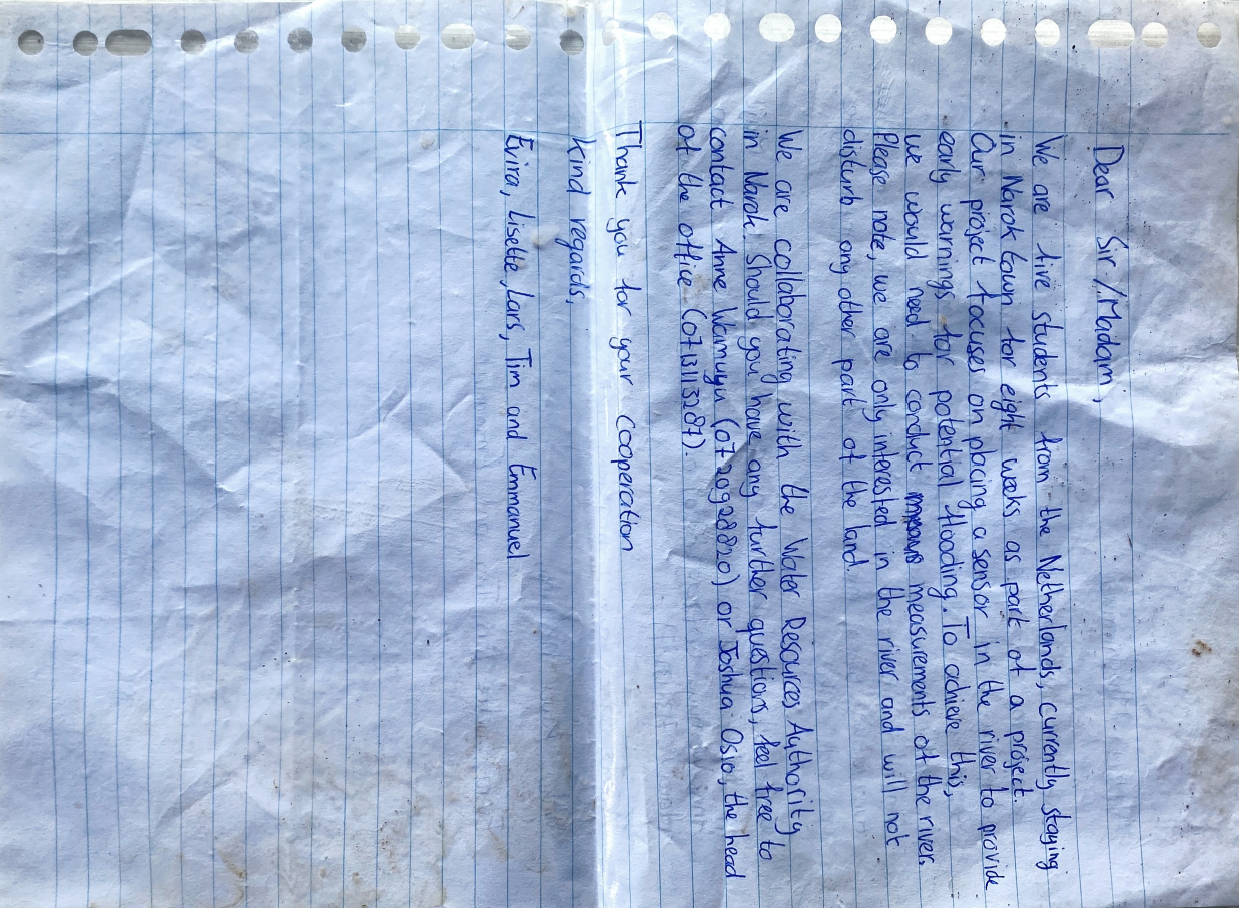 Dear Sir/Madam,
We are five students from the Netherlands, currently staying
in Narok town for eight weeks as part of a project.
Our project focuses on placing a sensor in the river to provide
early warnings for potential flooding. To achieve this,
we would need to conduct measurements of the river.
Please note, we are only interested in the river and will not
disturb any other part of the land.
We are collaborating with the Water Resources Authority
in Narok. Should you have any further questions, feel free to
contact Anne Wamuyu (0720928820) or Joshua Osio, the head
of the office (0713113287).
Thank you for your cooperation
Kind regards,
Evira, Lisette, Lars, Tim and Emmanuel